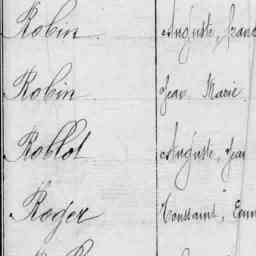 Robin. Auguste, franc
Robin. Jean Marie.
Roblot Auguste, Jean
Roger Toussaint, Emm